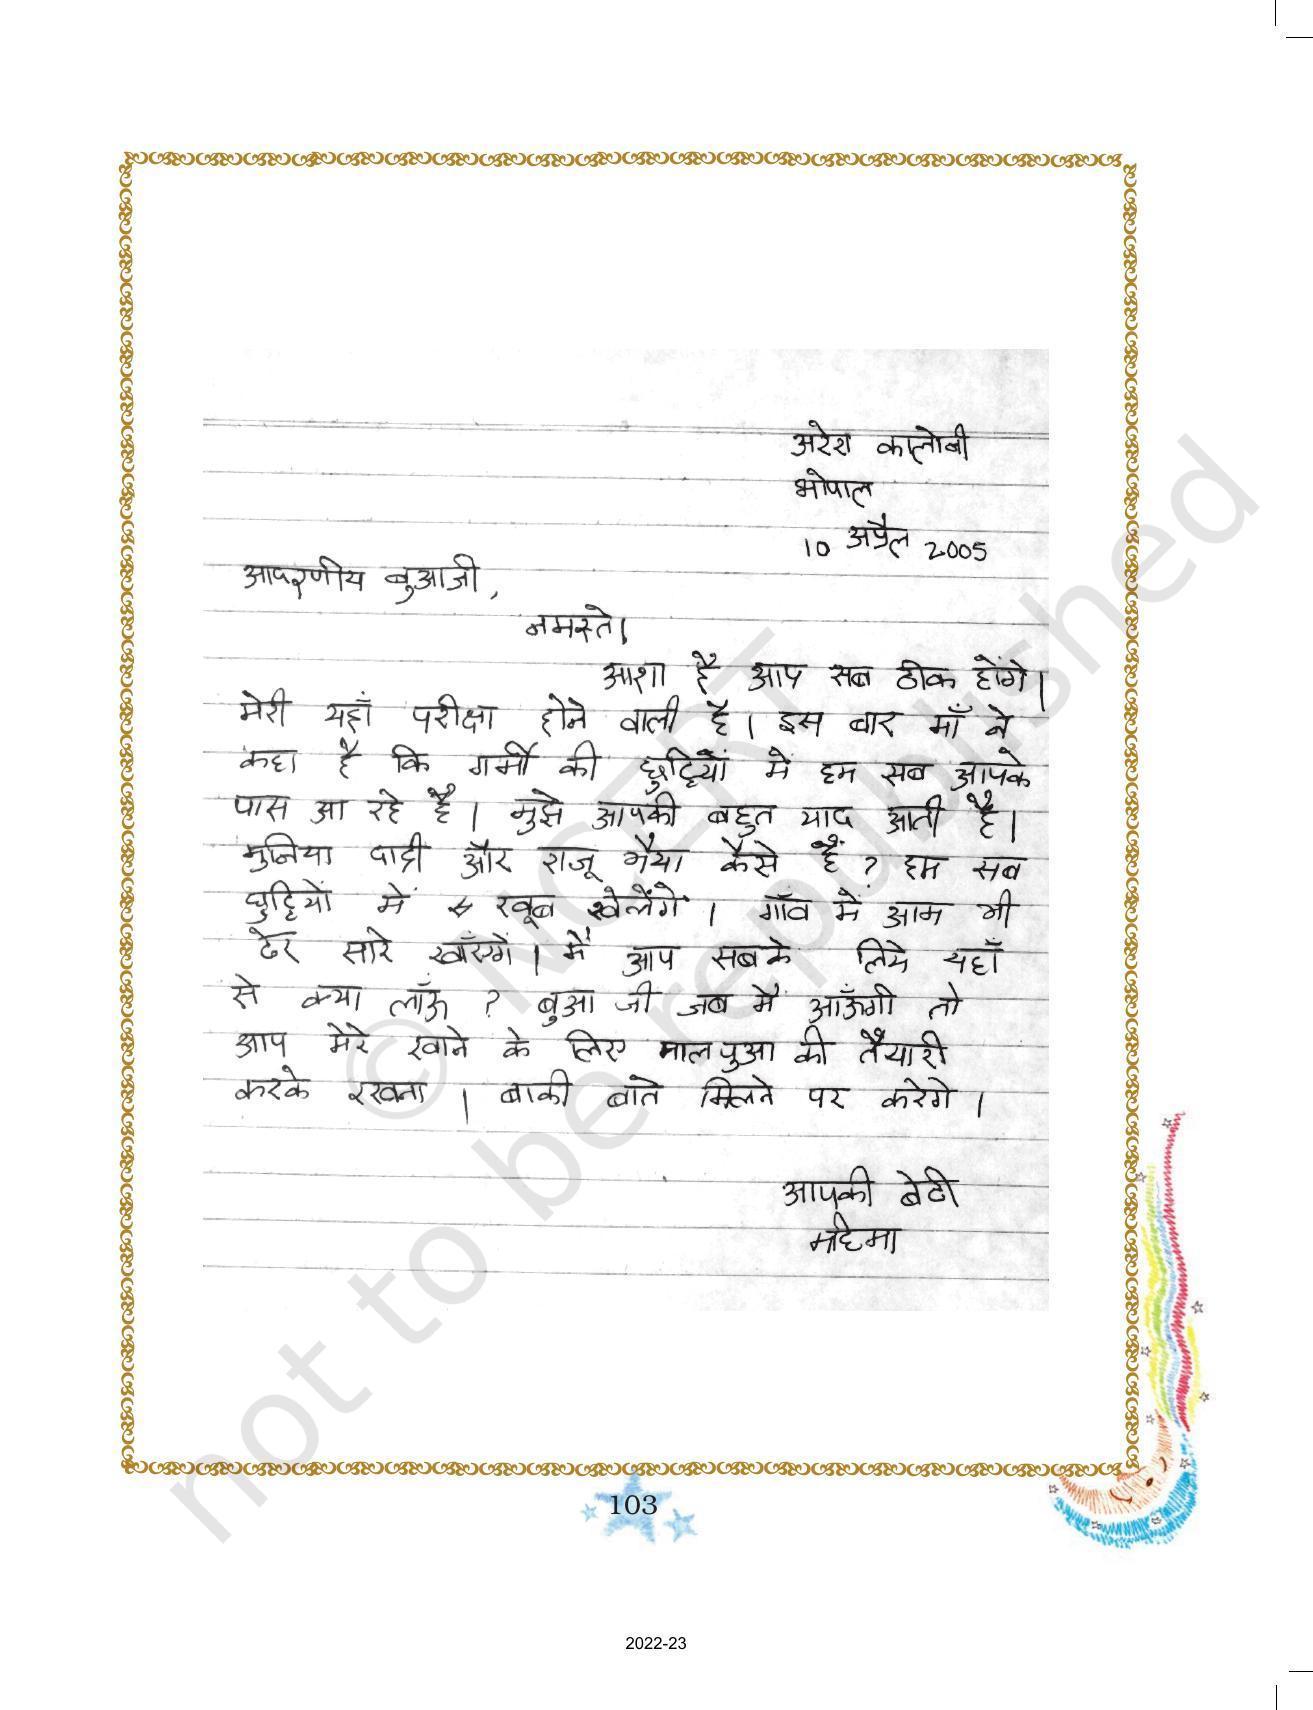 अरेरा कालोनी
भोपाल
10 अप्रैल 2005
आदरणीय बुआजी,
नमस्ते।
आशा है आप सब ठीक होंगे।
मेरी यहाँ परीक्षा होने वाली है। इस बार माँ ने
कहा है कि गर्मी की छुट्टियों में हम सब आपके
पास आ रहे हैं। मुझे आपकी बहुत याद आती है।
मुनिया दादी और राजू भैया कैसे हैं? हम सब
छुट्टियों में खूब खेलेंगे। गाँव में आम भी
ढेर सारे खाँएगें। मैं आप सबके लिये यहाँ
से क्या लाँऊ? बुआ जी जब मैं आँऊगी तो
आप मेरे खाने के लिए मालपुआ की तैयारी
करके रखना। बाकी बाते मिलने पर करेगे।
आपकी बेटी
महिमा
© NCERT
not to be republished
103
2022-23